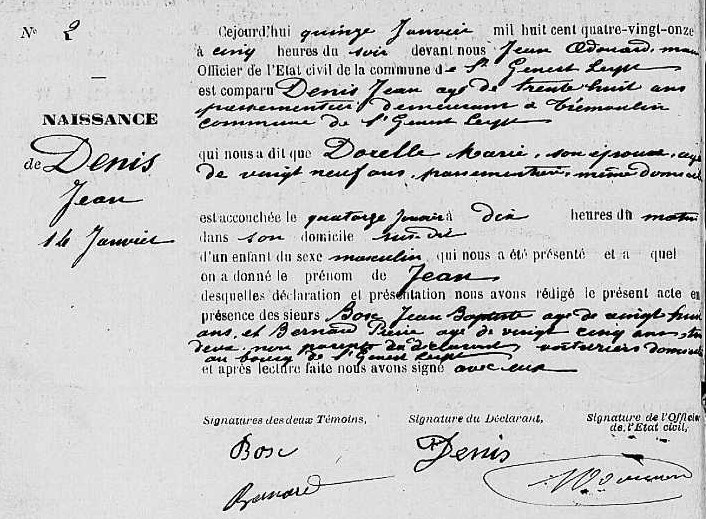 N° 2
NAISSANCE
de Denis
Jean
14 Janvier
Cejourd'hui quinze Janvier mil huit cent quatre-vingt-onze
à cinq heures du soir devant nous Jean Edouard, mai
Officier de l'Etat civil de la commune de St Genest Lerpt
est comparu Denis Jean agé de trente huit ans
passementier demeurant à Trémoulin
commune de St Genest Lerpt
qui nous a dit que Dorelle Marie, son épouse, agé
de vingt neuf ans, passementière, même domicil
est accouchée le quatorze Janvier à dix heures du matin
dans son domicile susdit
d'un enfant du sexe masculin qui nous a été présenté et a quel
on a donné le prénom de Jean
desquelles déclaration et présentation nous avons rédigé le présent acte en
présence des sieurs Bosc Jean Baptiste agé de vingt huit
ans, et Bernard Pierre agé de vingt cinq ans, tou
deux non parents du déclarant domicil
au bourg de St Genest Lerpt
et après lecture faite nous avons signé avec eux
Signatures des deux Témoins, Signature du Déclarant, Signature de l'Officier
de l'Etat civil,
Bosc Denis
Bernard